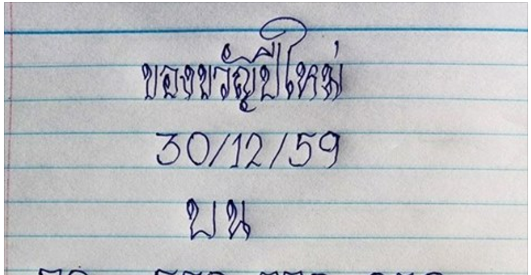 ของขวัญปีใหม่
30/12/59
บน